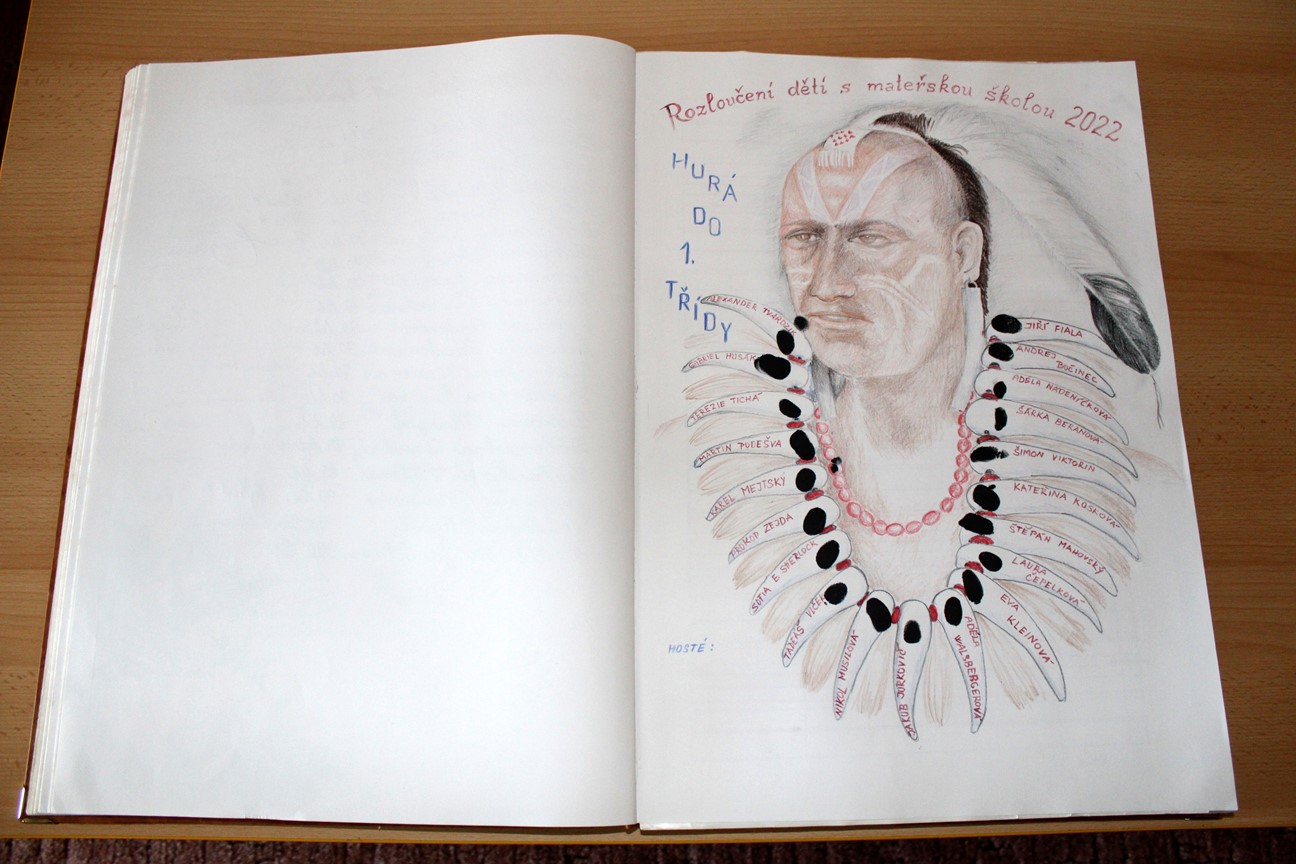 Rozloučení dětí s mateřskou školou 2022
HURÁ
DO
1.
TŘÍDY
ALEXANDER TVARDZIK
GABRIEL HUSÁK
TEREZIE TICHÁ
MARTIN PODEŠVA
KAREL MEJTSKÝ
PROKOP ZEJDA
SOFIA E. SHERLOCK
TADEÁŠ VLČEK
NIKOL MUSILOVÁ
JAKUB JURKOVIČ
ADÉLA
WALSBERGEROVÁ
EVA
KLEINOVÁ
LAURA
ČEPELKOVÁ
ŠTĚPÁN MAHOVSKÝ
KATEŘINA KOSKOVÁ
ŠIMON VIKTORIN
ŠÁRKA BERANOVÁ
ADÉLA NÁDENÍČKOVÁ
ANDREJ
BOČINEC
JIŘÍ FIALA
HOSTÉ: